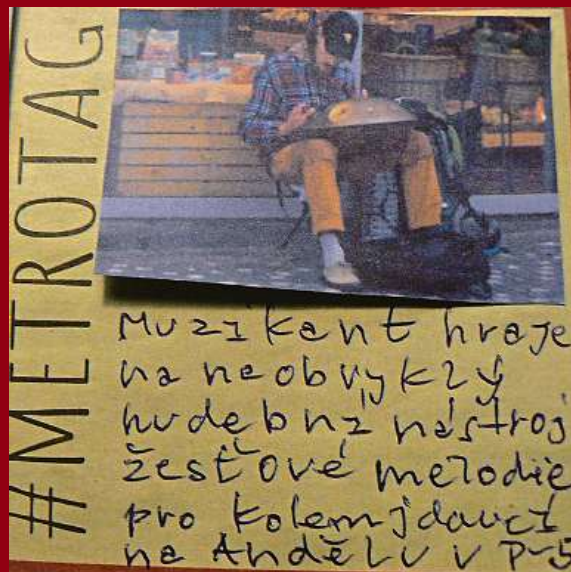 #METROTAG
Muzikant hraje
na neobvyklý
hudební nástroj
žesťové melodie
pro kolemjdoucí
na Andělu v P-5